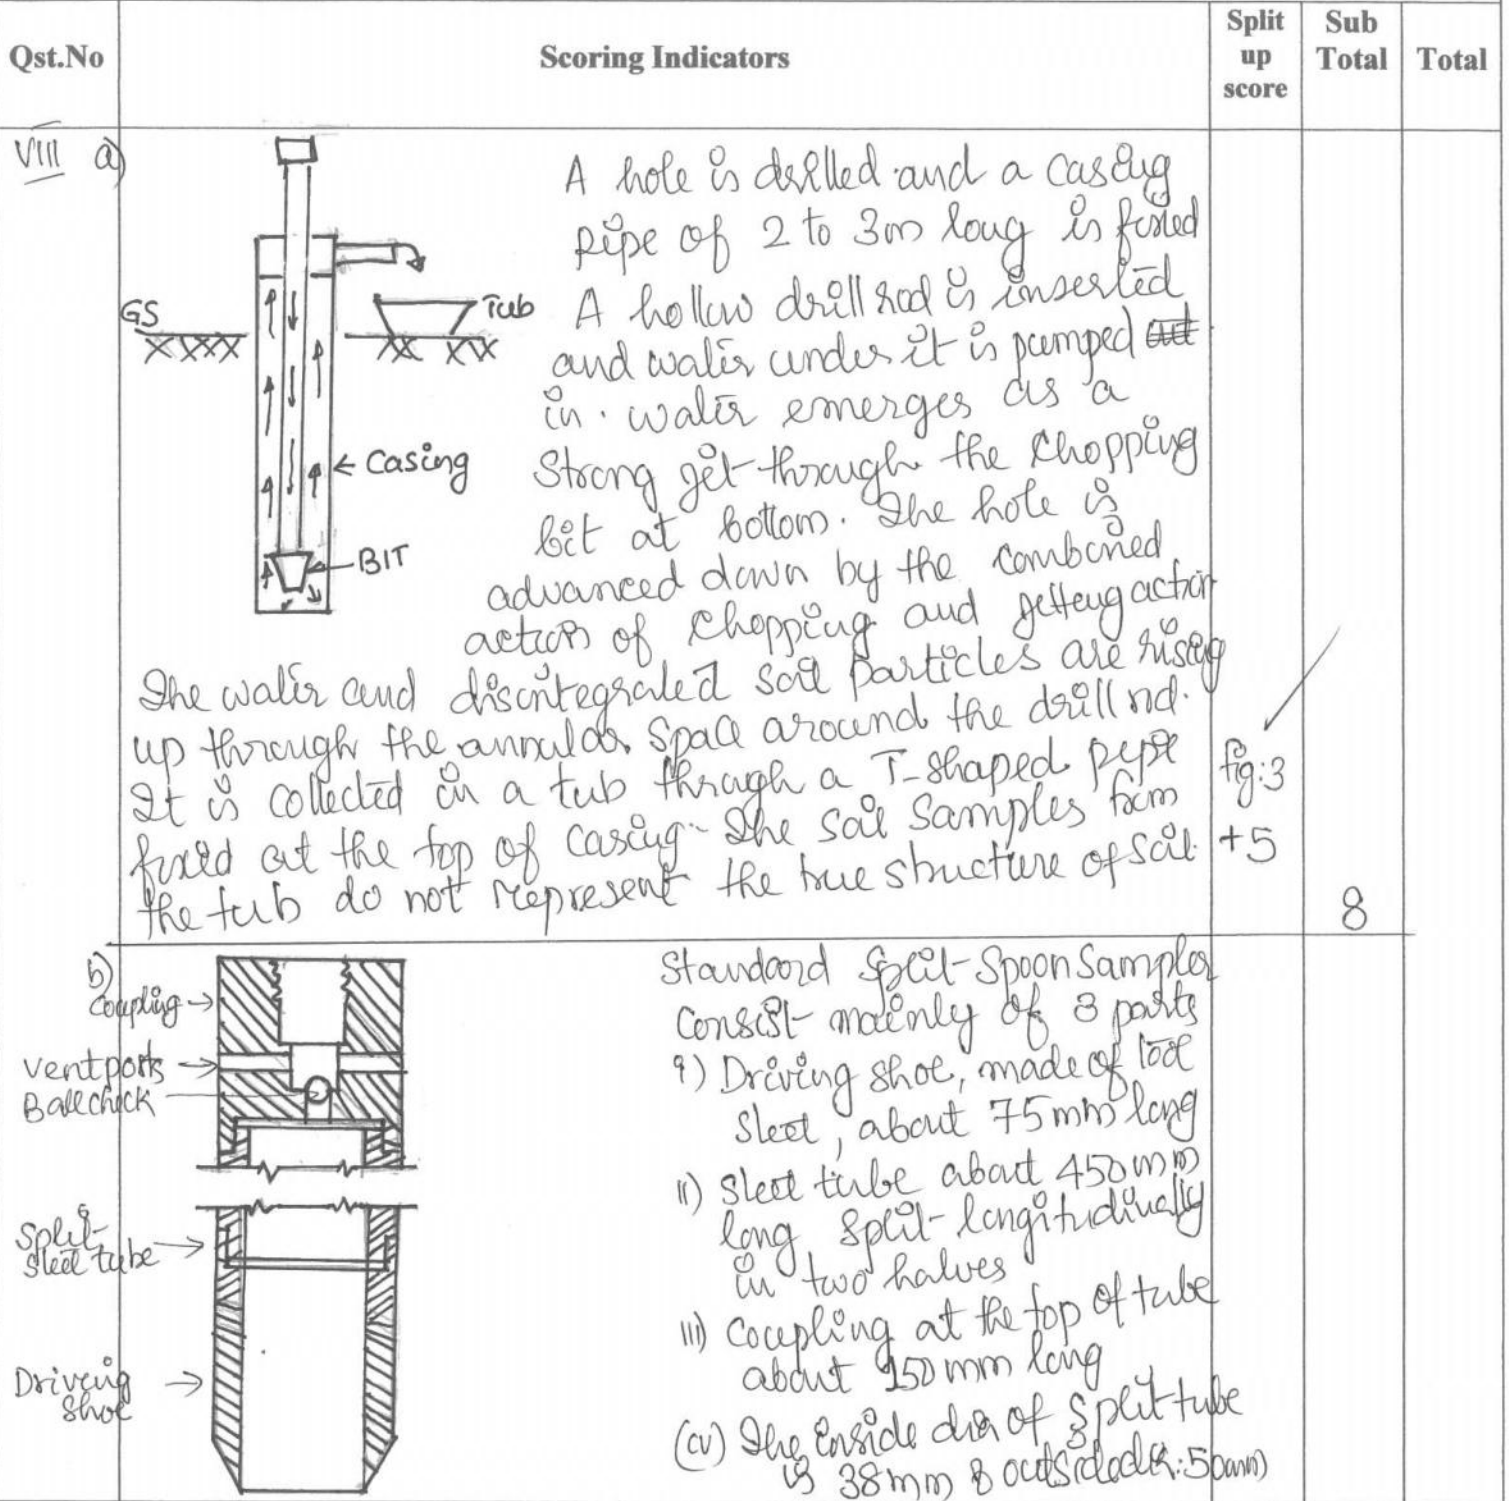 Qst.No
Scoring Indicators
Split
up
score
Sub
Total
Total
VIII a)
GS
Tub
Casing
BIT
A hole is drilled and a casing
pipe of 2 to 3m long is fixed
A hollow drill rod is inserted
and water under it is pumped
in. water emerges as a
Strong jet through the chopping
bit at bottom. The hole is
advanced down by the combined
action of chopping and jetteng action
The water and disintegrated soil particles are rising
up through the annular space around the drill rod.
It is collected in a tub through a T-shaped pipe
fixed at the top of casing. The soil samples from
the tub do not represent the true structure of soil.
fig:3
+5
8
b)
Coupling
ventports
Ballcheck
Split-
Steel tube
Driving
shoe
Standard Split-Spoon Sampler
Consist mainly of 3 parts
i) Driving shoe, made of tool
steel, about 75mm long
ii) Steel tube about 450mm
long split-longitudinally
in two halves
iii) Coupling at the top of tube
about 150mm long
(iv) The inside dia of split tube
is 38mm & outside dia: 50mm)